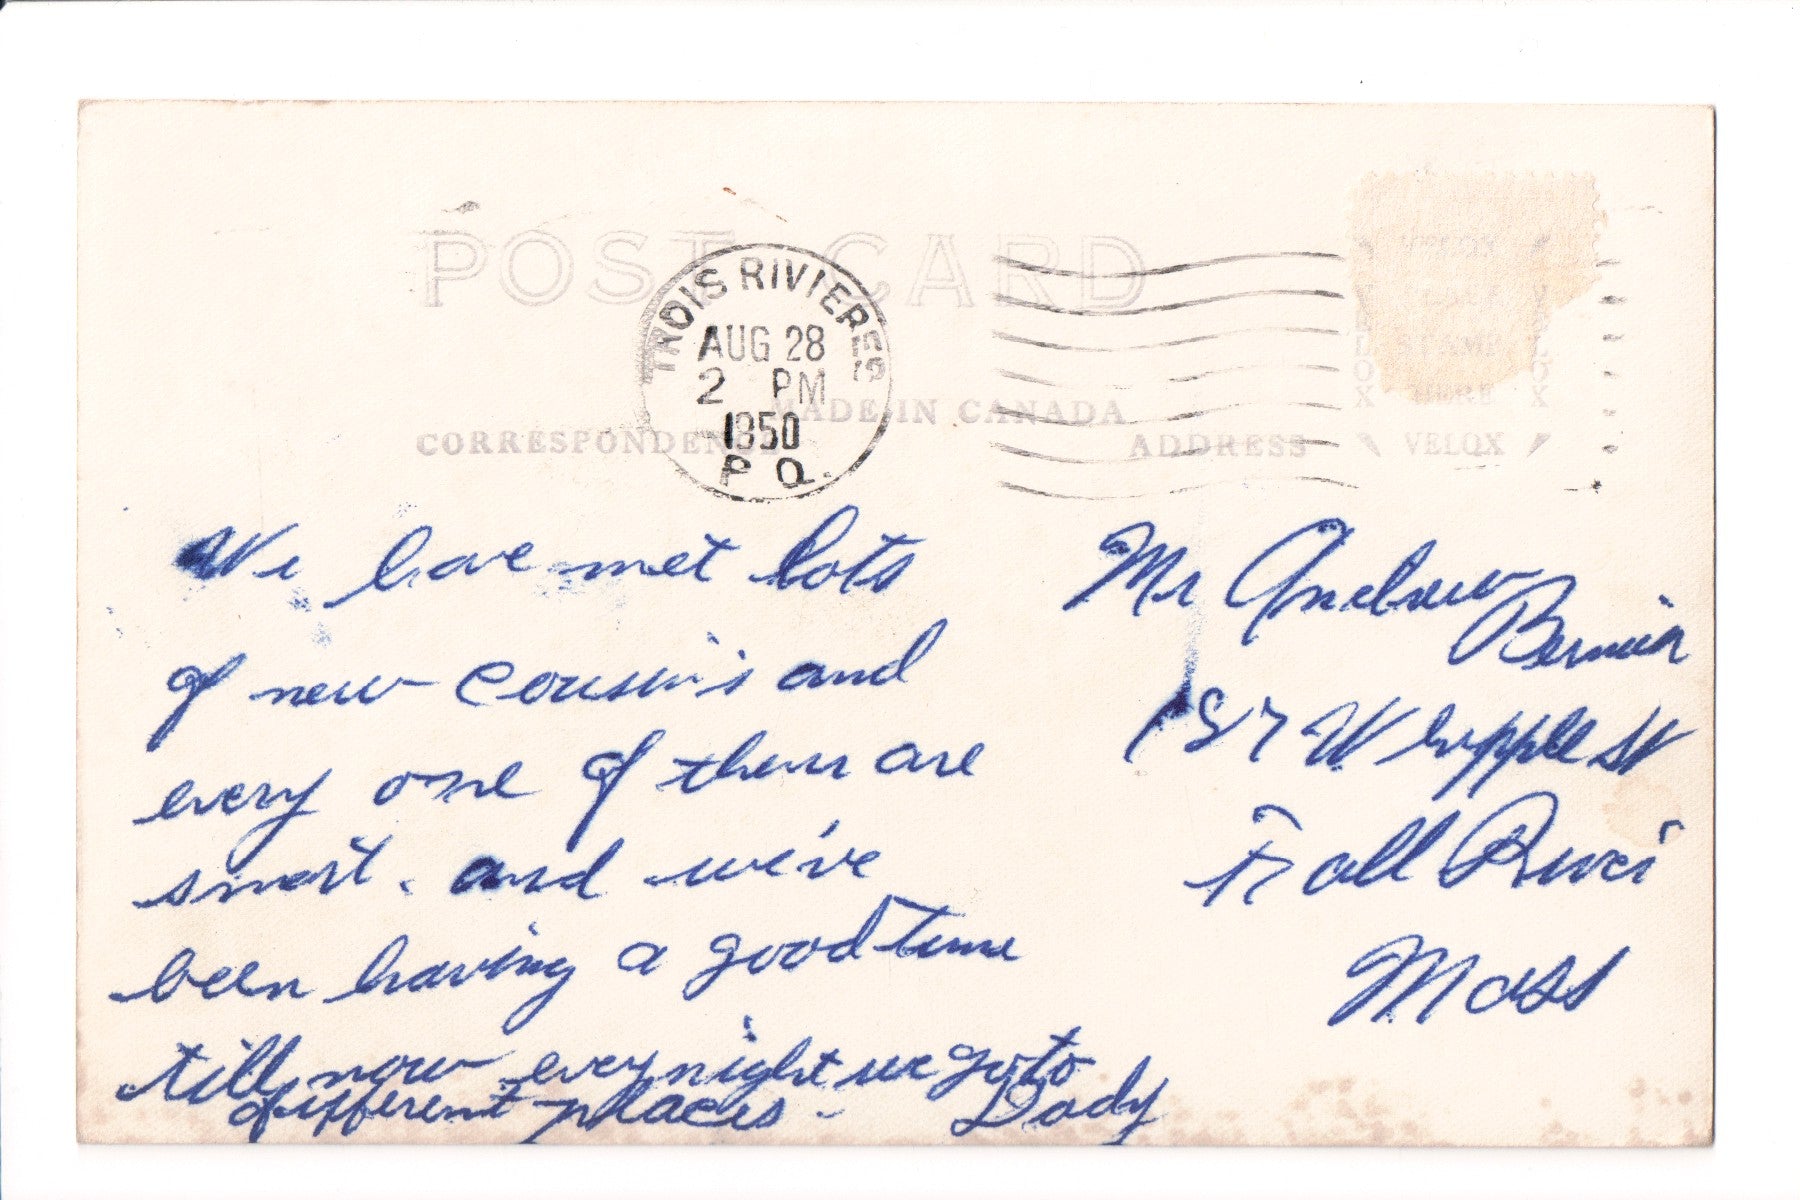 POST CARD
TROIS RIVIERES
AUG 28
2 PM
1950
P Q.
MADE IN CANADA
CORRESPONDENCE
ADDRESS
VELOX
PLACE
STAMP
HERE
VELOX
We have met lots
of new cousin's and
every one of them are
smart. and we've
been having a good time
till now every night we go to
different places - Dady
Mr Andrew
Bernier
187 Whipple St
Fall River
Mass